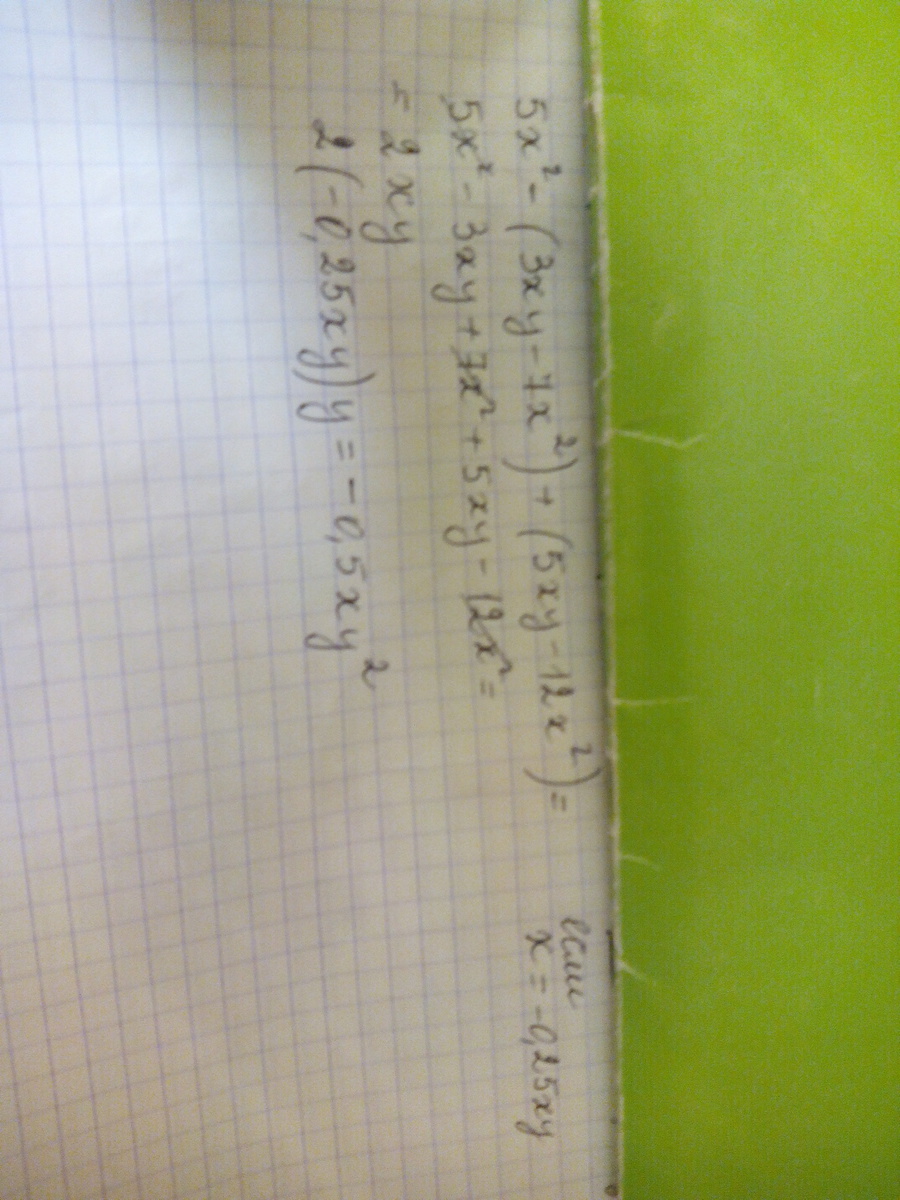 5x² - (3xy - 7x²) + (5xy - 12x²) =
если
x = -0,25xy
5x² - 3xy + 7x² + 5xy - 12x² =
= 2xy
2(-0,25xy)y = -0,5xy²